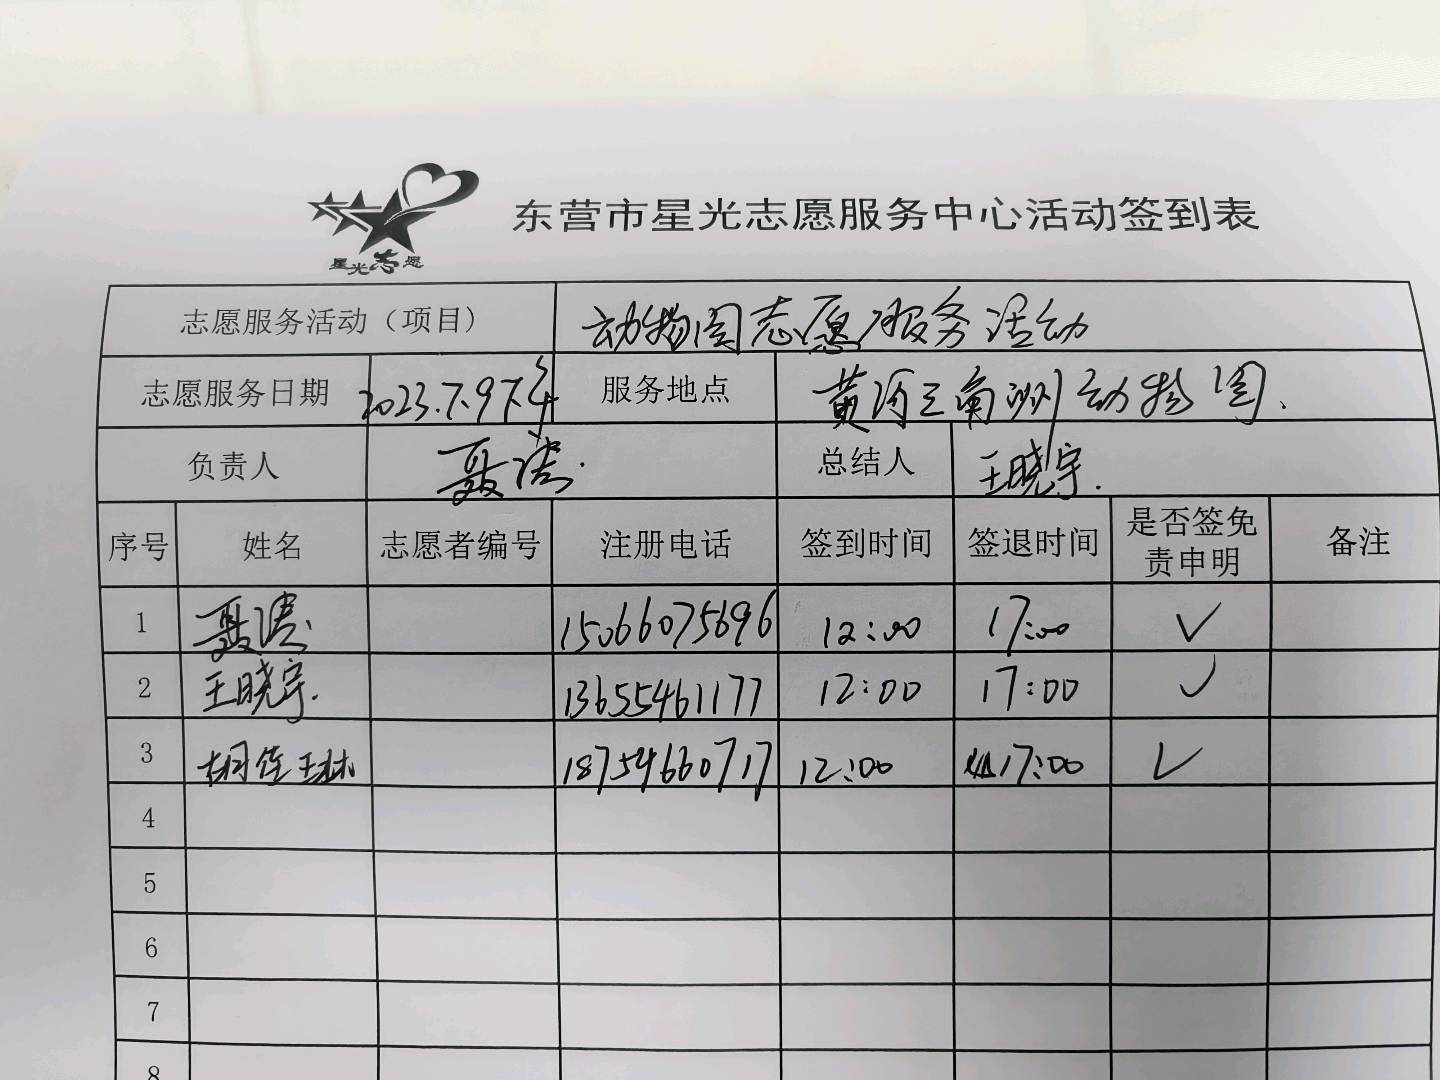 星光志愿
东营市星光志愿服务中心活动签到表
志愿服务活动（项目） 动物园志愿服务活动
志愿服务日期 2023.7.9下午 服务地点 黄河三角洲动物园.
负责人 聂涛. 总结人 王晓宇.
序号 姓名 志愿者编号 注册电话 签到时间 签退时间 是否签免责申明 备注
1 聂涛. 15066075696 12:00 17:00 ✓
2 王晓宇. 13655461177 12:00 17:00 ✓
3 18754660717 12:00 17:00 ✓
4
5
6
7
8